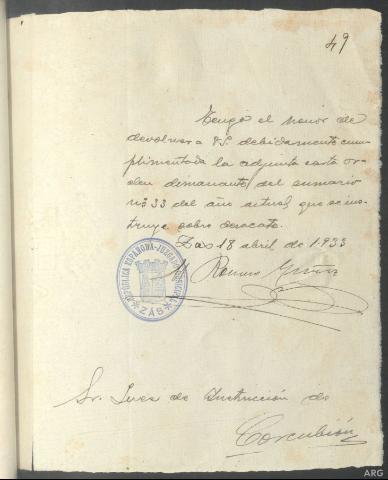 49
Tengo el honor de
devolver a V.S. debidamente cum-
plimentada la adjunta carta or-
den dimanante del sumario
nº 33 del año actual, que se ins-
truye sobre desacato.
Zas 18 abril de 1933
Sr. Juez de Instrucción de
Corcubión
REPÚBLICA ESPAÑOLA-JUZGADO MUNICIPAL
ZÁS
ARG